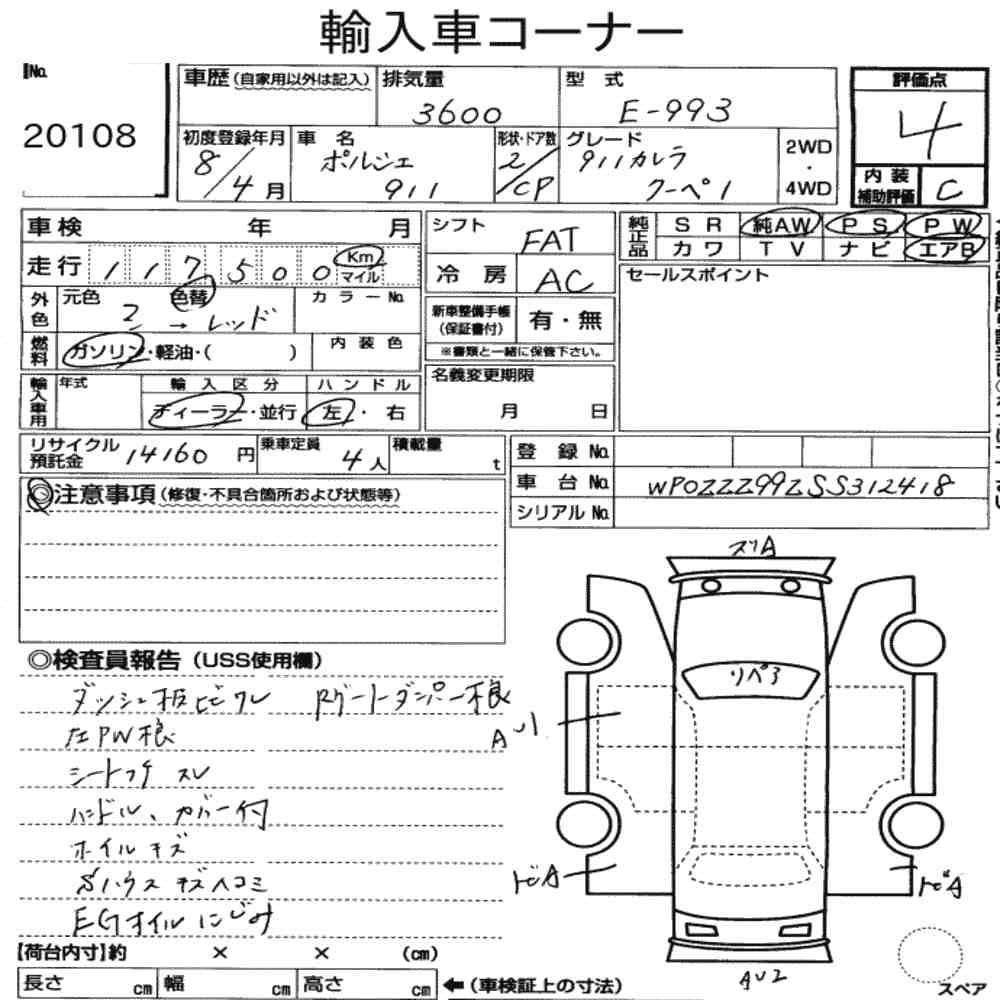 輸入車コーナー
No. 20108
車歴 (自家用以外は記入)
排気量 3600
型式 E-993
評価点 4
内装補助評価 C
初度登録年月 8/4月
車名 ポルシェ 911
形状・ドア数 2/CP
グレード 911カレラ クーペ
2WD・4WD
車検 年 月
走行 117500 Km マイル
外色 元色 色替 カラーNo.
→レッド
燃料 ガソリン・軽油・( )
内装色
輸入車用 年式
輸入区分 ディーラー・並行
ハンドル 左・右
シフト FAT
冷房 AC
新車整備手帳(保証書付) 有・無
※書類と一緒に保管下さい。
名義変更期限
月 日
純正品 SR 純AW PS PW
カワ TV ナビ エアB
セールスポイント
リサイクル預託金 14160円
乗車定員 4人
積載量 t
登録No.
車台No. WP0ZZZ99ZSS312418
シリアルNo.
◎注意事項(修復・不具合箇所および状態等)
◎検査員報告(USS使用欄)
ダッシュ板ヒビワレ Rゲートダンパー不良
左PW不良
シートコゲ スレ
ハンドル、カバー付
ホイルキズ
Sハウスキズヘコミ
EGオイルにじみ
スリA
リペ
A
トビA
トビA
AU2
スペア
【荷台内寸】約 × × (cm)
長さ cm 幅 cm 高さ cm ←(車検証上の寸法)